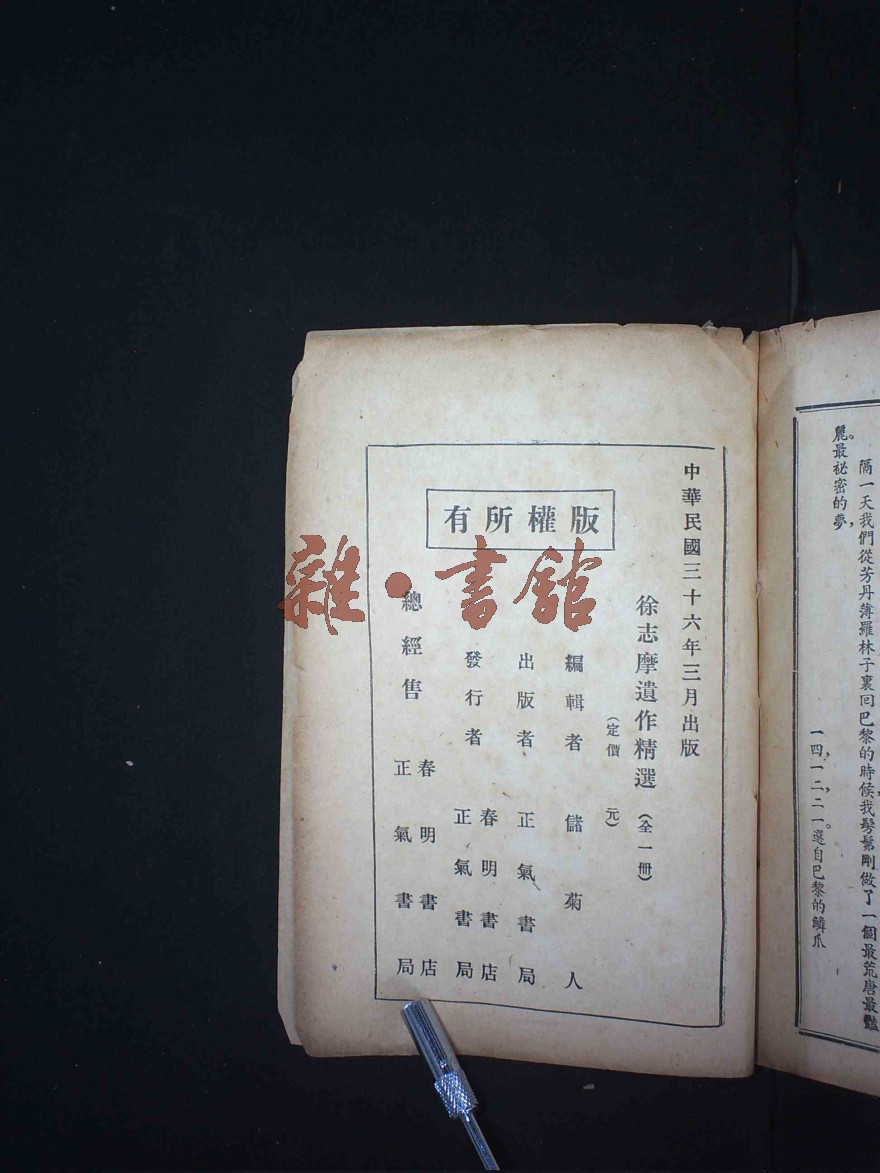 隔一天我們從芳丹薄羅林子裏回巴黎的時候我髣髴剛做了一個最荒唐最豔
麗最祕密的夢。
一四,一二,二一。選自巴黎的鱗爪
中華民國三十六年三月出版
徐志摩遺作精選(全一冊)
(定價 元)
編輯者 儲菊人
出版者 正氣書局
發行者 春明書店
正氣書局
總經售 春明書店
正氣書局
版權所有
雜·書館